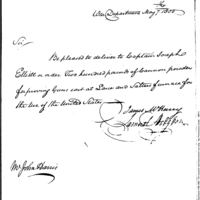 War Department May 7th 1800
Sir
Be pleased to deliver to Captain Joseph
Elliott order Two hundred pounds of Cannon powder
for proving Guns cast at Lane and Salters furnace for
the use of the United States
James McHenry
Samuel Hodgdon
Mr John Harris